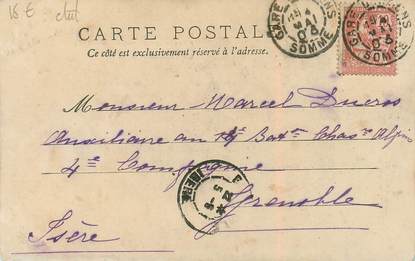 15 €
CARTE POSTALE
Ce côté est exclusivement réservé à l'adresse.
GARE D'AMIENS
MAI
SOMME
GARE
MAI
SOMME
Monsieur Marcel Ducros
Auxiliaire au 14e Batn Chasrs Alpins
4e Compagnie
Grenoble
Isère
ISERE